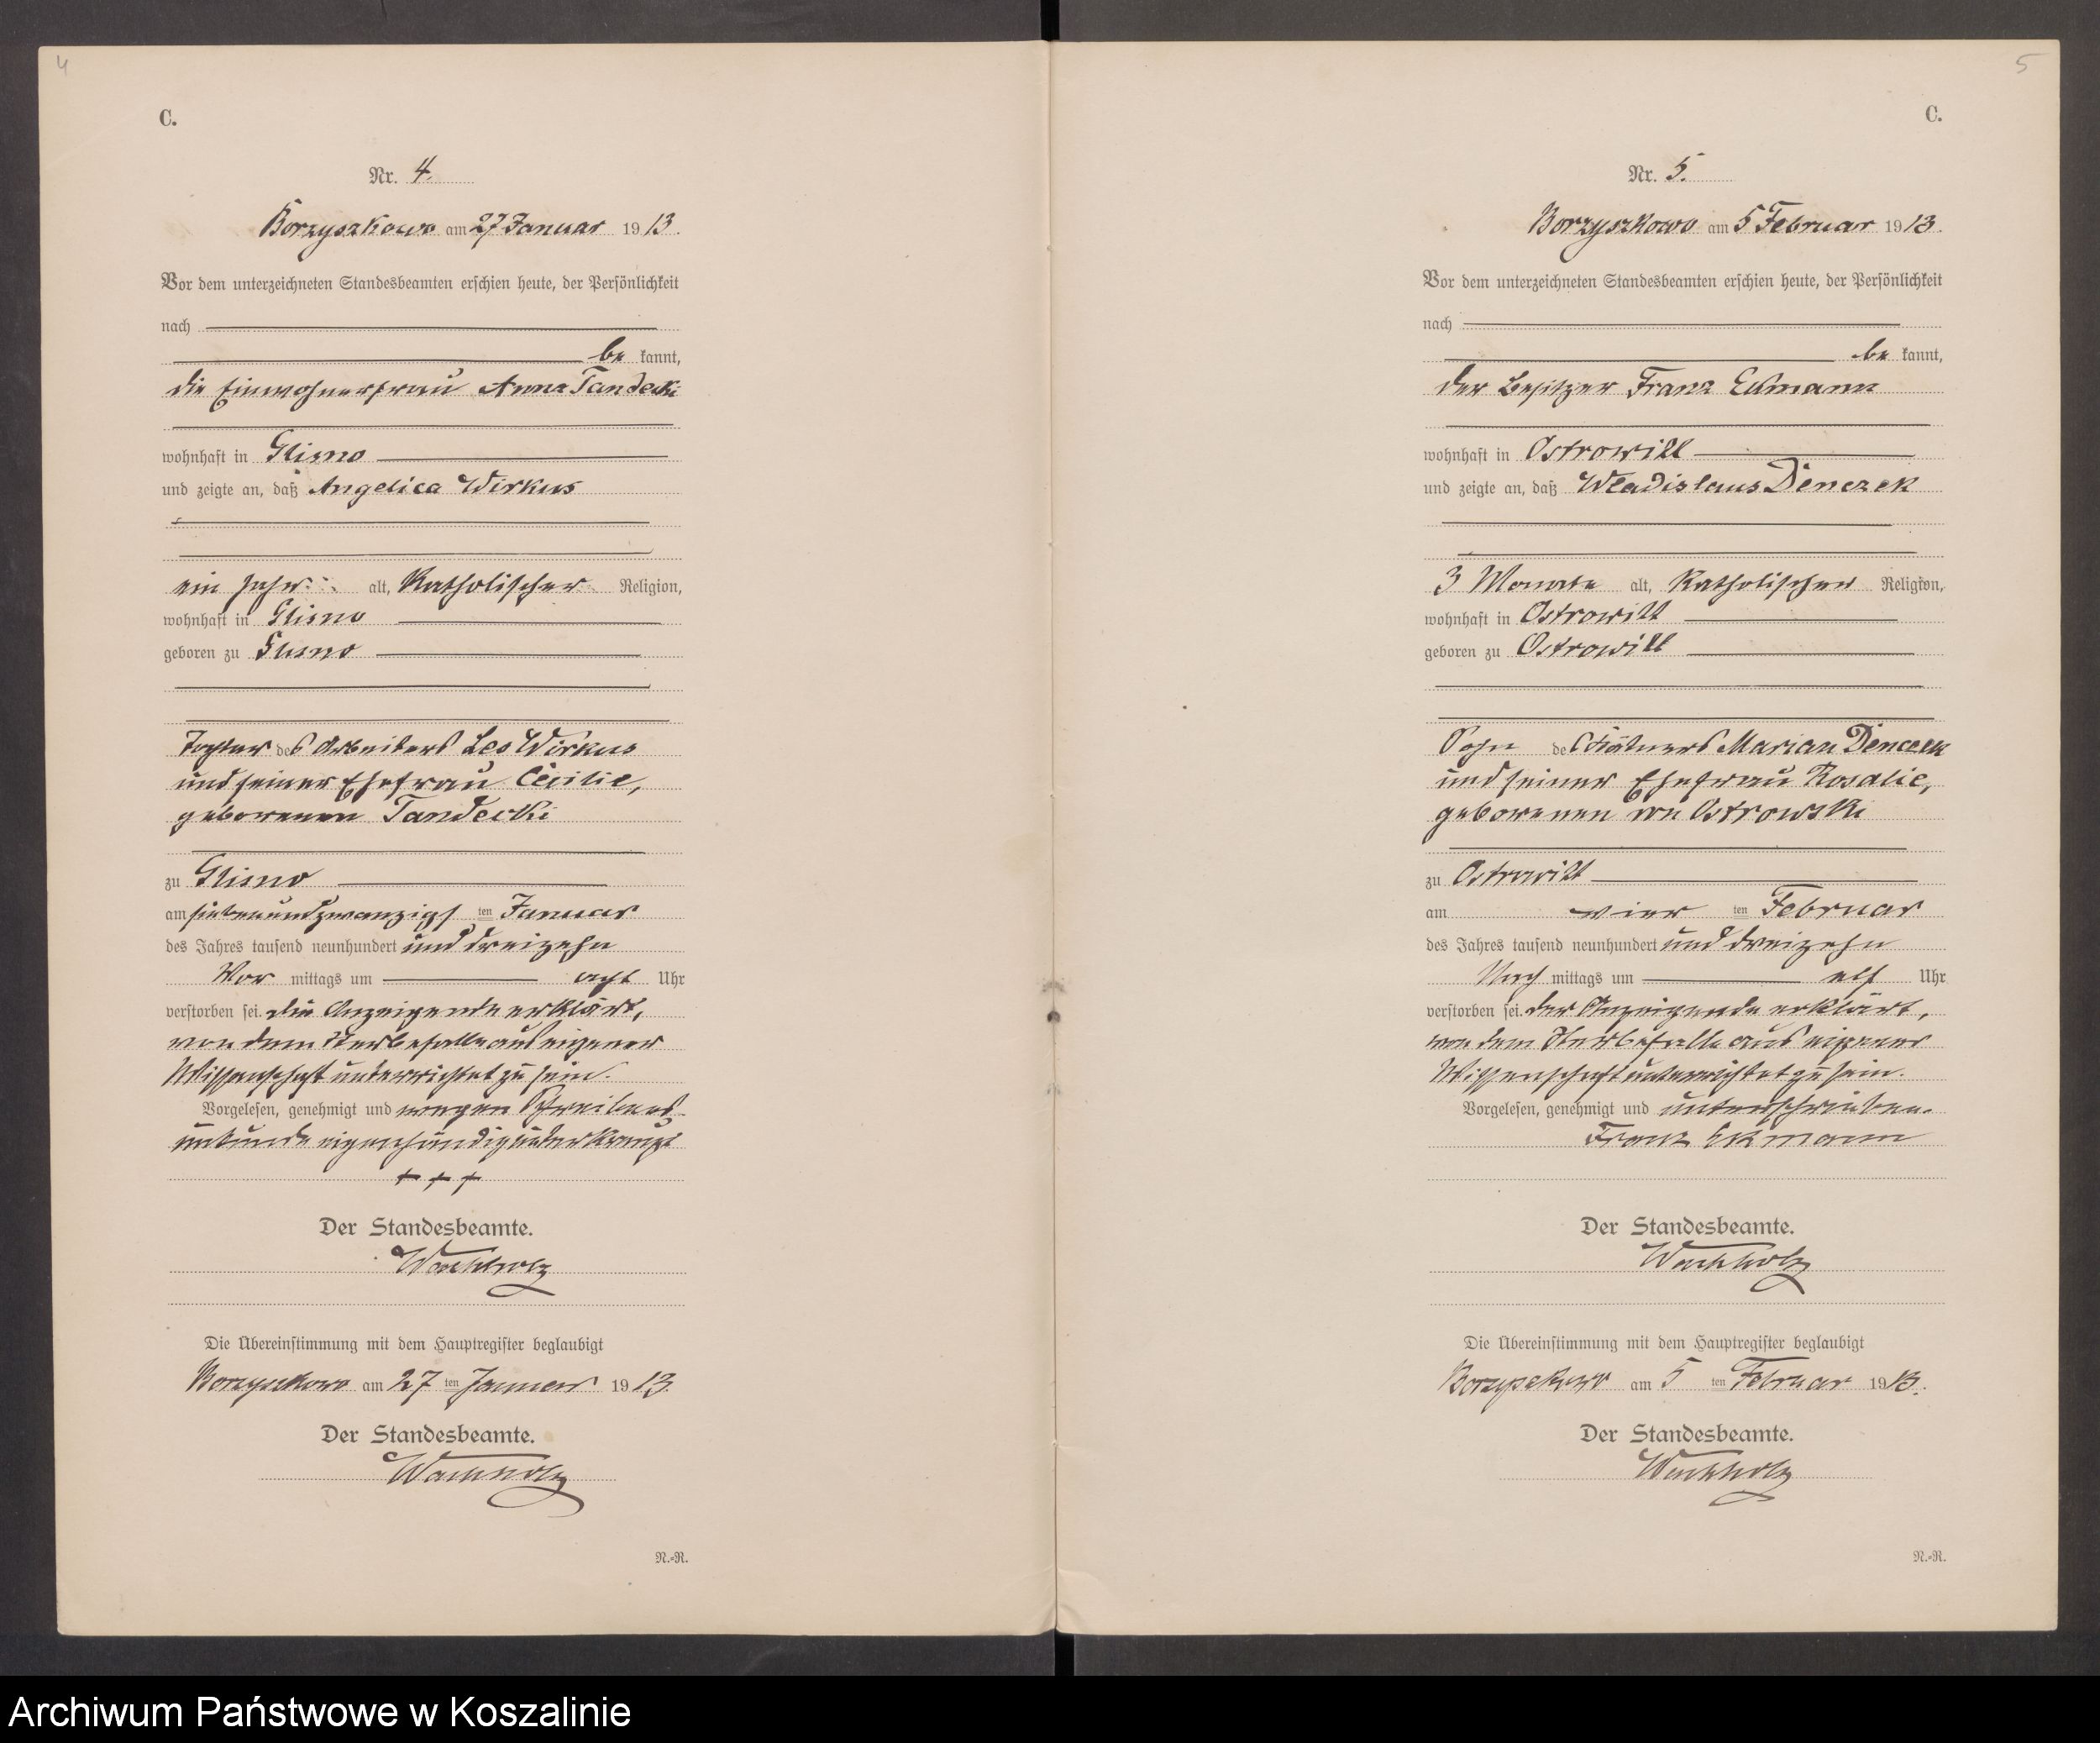 4
C.
Nr. 4.
Borzyszkowo am 27 Januar 1913.
Vor dem unterzeichneten Standesbeamten erschien heute, der Persönlichkeit
nach
be kannt,
die Einwohnerfrau Anna Tandecki
wohnhaft in Glisno
und zeigte an, daß Angelica Wirkus
ein Jahr alt, Katholischer Religion,
wohnhaft in Glisno
geboren zu Glisno
Tochter des Arbeiters Leo Wirkus
und seiner Ehefrau Cecilie,
geborenen Tandecki
zu Glisno
am siebenundzwanzigsten Januar
des Jahres tausend neunhundert und dreizehn
Vor mittags um acht Uhr
verstorben sei. Die Anzeigende erklärt,
von dem Sterbefalle aus eigener
Wissenschaft unterrichtet zu sein.
Vorgelesen, genehmigt und wegen Schreibens-
unkunde eigenhändig unterkreuzt
+ + +
Der Standesbeamte.
Wachholz
Die Übereinstimmung mit dem Hauptregister beglaubigt
Borzyszkowo am 27 ten Januar 1913.
Der Standesbeamte.
Wachholz
N.-R.
5
C.
Nr. 5.
Borzyszkowo am 5 Februar 1913.
Vor dem unterzeichneten Standesbeamten erschien heute, der Persönlichkeit
nach
be kannt,
der Besitzer Franz Eckmann
wohnhaft in Ostrowitt
und zeigte an, daß Wladislaus Denczek
3 Monate alt, Katholischer Religion,
wohnhaft in Ostrowitt
geboren zu Ostrowitt
Sohn des Kätners Marian Denczek
und seiner Ehefrau Rosalie,
geborenen von Ostrowski
zu Ostrowitt
am vier ten Februar
des Jahres tausend neunhundert und dreizehn
Nach mittags um elf Uhr
verstorben sei. Der Anzeigende erklärt,
von dem Sterbefalle aus eigener
Wissenschaft unterrichtet zu sein.
Vorgelesen, genehmigt und unterschrieben.
Franz Ekmann
Der Standesbeamte.
Wachholz
Die Übereinstimmung mit dem Hauptregister beglaubigt
Borzyszkowo am 5 ten Februar 1913.
Der Standesbeamte.
Wachholz
N.-R.
Archiwum Państwowe w Koszalinie